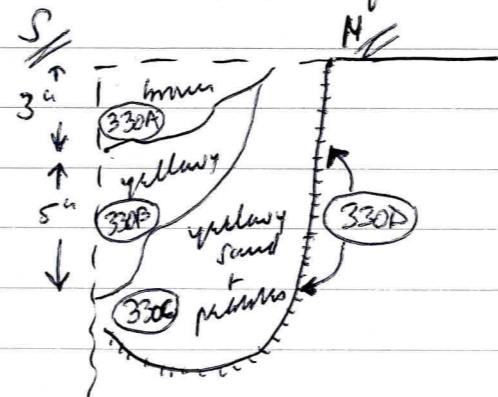 S N
3"
brown
330A
yellowy
5"
330B
yellowy
sand
+
330C
330D